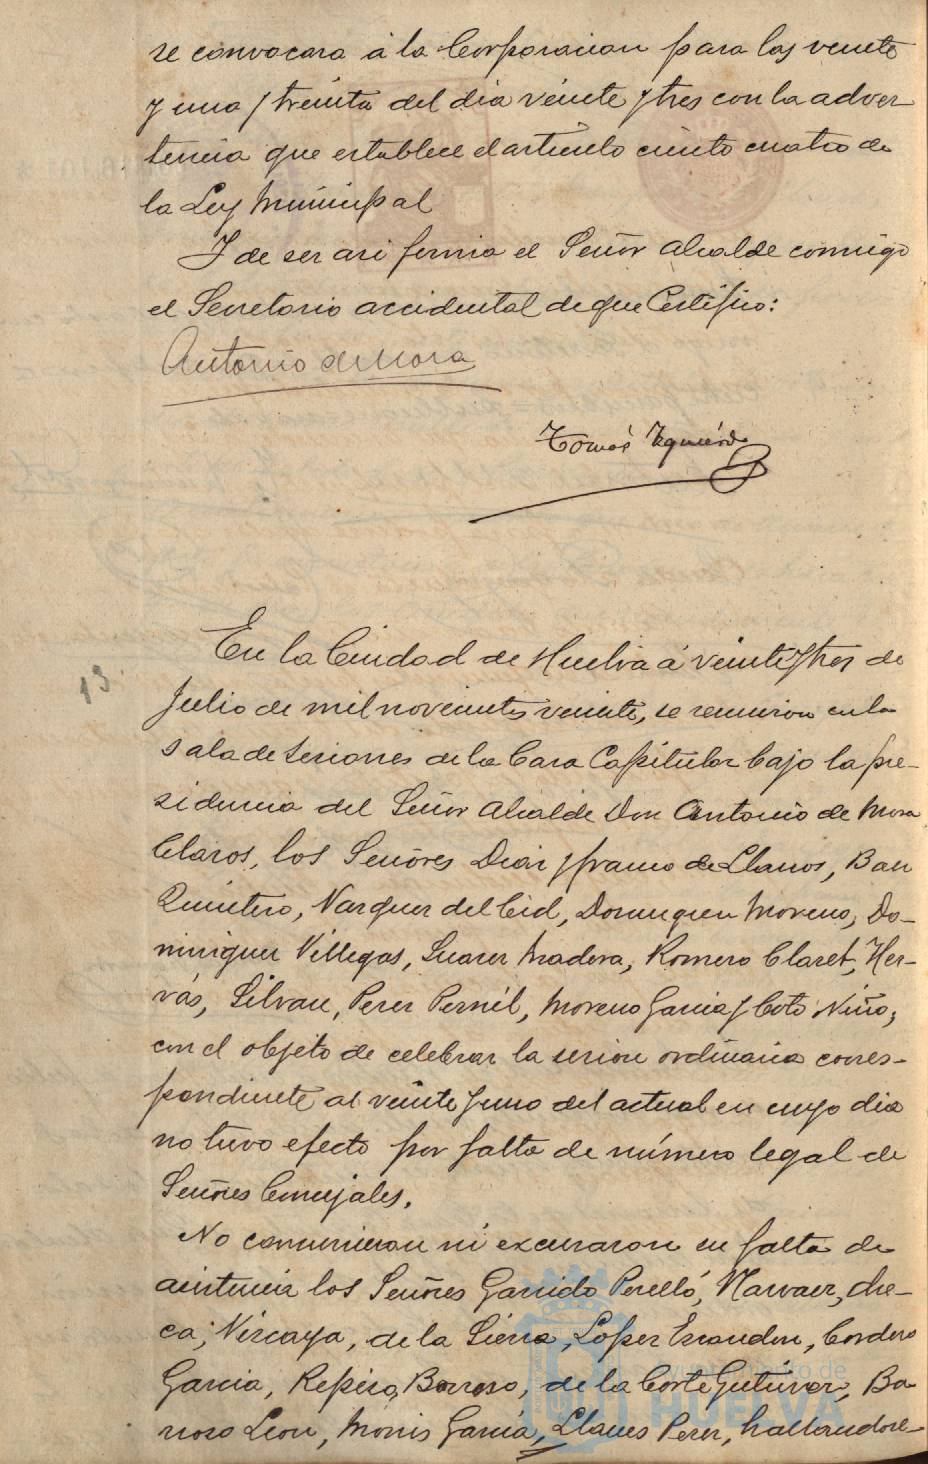 se convocara á la Corporacion para las veinte
y una y treinta del dia veinte y tres con la adver
tencia que establece el articulo ciento cuatro de
la Ley Municipal
Y de ser asi firma el Señor Alcalde conmigo
el Secretario accidental de que Certifico:
Antonio de Mora
Tomás Izquierdo
13
En la Ciudad de Huelva á veinte y tres de
Julio de mil novecientos veinte, se reunieron en la
Sala de Sesiones de la Casa Capitular bajo la pre-
sidencia del Señor Alcalde Don Antonio de Mora
Claros, los Señores Diaz y Franco de Llanos, Ban
Quintero, Vazquez del Cid, Dominguez Moreno, Do-
minguez Villegas, Suarez Madera, Romero Claret, Her-
vás, Silvan, Perez Pernil, Moreno Garcia y Coto Niño,
con el objeto de celebrar la sesion ordinaria corres-
pondiente al veinte y uno del actual en cuyo dia
no tuvo efecto por falta de número legal de
Señores Concejales.
No concurrieron ni excusaron su falta de
asistencia los Señores Garrido Perelló, Narvaez, Che-
ca, Vizcaya, de la Sierra, Lopez Escandon, Cordero
Garcia, Repiso, Barroso, de la Corte Gutierrez, Ba
rroso Leon, Monis Garcia, Llanes Perez, hallandose
Ayuntamiento de
HUELVA